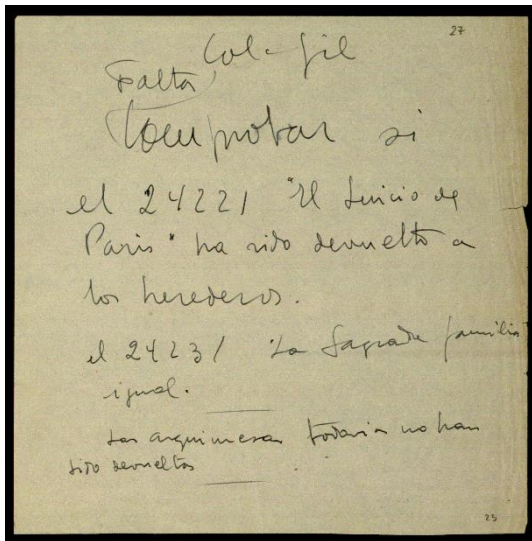 27
Col. Gil
Falta
Comprobar si
el 24221 "El Juicio de
Paris" ha sido devuelto a
los herederos.
el 24231 "La Sagrada familia"
igual.
Las arquimesas todavia no han
sido devueltas
23